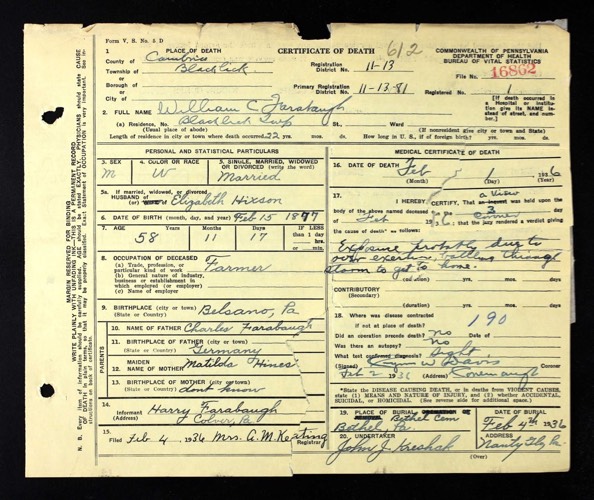 Form V. S. No. 5 D
1 PLACE OF DEATH
CERTIFICATE OF DEATH 612
COMMONWEALTH OF PENNSYLVANIA
DEPARTMENT OF HEALTH
BUREAU OF VITAL STATISTICS
County of Cambria
Township of Blacklick
or
Borough of
or
City of
Registration District No. 11-13
Primary Registration District No. 11-13-81
File No. 16862
Registered No. 1
[If death occurred in a Hospital or institution give its NAME instead of street, and number.]
2. FULL NAME William C. Farabaugh
(a) Residence, No. Blacklick Twp St., Ward
(Usual place of abode) (If nonresident give city or town and State)
Length of residence in city or town where death occurred 22 yrs. mos. ds. How long in U. S., if of foreign birth? yrs. mos. ds.
PERSONAL AND STATISTICAL PARTICULARS
3. SEX M
4. COLOR OR RACE W
5. SINGLE, MARRIED, WIDOWED OR DIVORCED (write the word) Married
5a. If married, widowed, or divorced
HUSBAND of (or) Elizabeth Hixson
6. DATE OF BIRTH (month, day, and year) Feb 15 1877
7. AGE Years 58 Months 11 Days 17 IF LESS than 1 day hrs. or min.
8. OCCUPATION OF DECEASED Farmer
(a) Trade, profession, or particular kind of work
(b) General nature of industry, business or establishment in which employed (or employer)
(c) Name of employer
9. BIRTHPLACE (city or town) Belsano, Pa
(State or Country)
PARENTS
10. NAME OF FATHER Charles Farabaugh
11. BIRTHPLACE OF FATHER (city or town) Germany
(State or Country)
12. MAIDEN NAME OF MOTHER Matilda Hines
13. BIRTHPLACE OF MOTHER (city or town) dont know
(State or Country)
14. Informant Harry Farabaugh
(Address) Colver, Pa.
15. Filed Feb 4, 1936 Mrs. A. M. Keating Registrar
MEDICAL CERTIFICATE OF DEATH
16. DATE OF DEATH Feb 1 1936
(Month) (Day) (Year)
17. I HEREBY CERTIFY, That a view was held upon the
body of the above named deceased on the 3
of Feb 1936; the jury rendered a verdict giving
the cause of death* as follows:
Exposure probably due to
over exertion, battling through
storm to get to home.
(duration) yrs. mos. ds.
CONTRIBUTORY
(Secondary)
(duration) yrs. mos. ds.
18. Where was disease contracted
if not at place of death? 190
Did an operation precede death? No
Was there an autopsy? No
What test confirmed diagnosis? Sight
Davis Coroner
Feb 2 1936 (Address) Conemaugh
*State the DISEASE CAUSING DEATH, or in deaths from VIOLENT CAUSES, state (1) MEANS AND NATURE OF INJURY, and (2) whether ACCIDENTAL, SUICIDAL, or HOMICIDAL. (See reverse side for additional space.)
19. PLACE OF BURIAL Bethel Cem
Bethel, Pa.
DATE OF BURIAL Feb 4th 1936
20. UNDERTAKER John J. Kreshak
ADDRESS Nanty Glo Pa.
(Over)
MARGIN RESERVED FOR BINDING
WRITE PLAINLY WITH UNFADING INK—THIS IS A PERMANENT RECORD